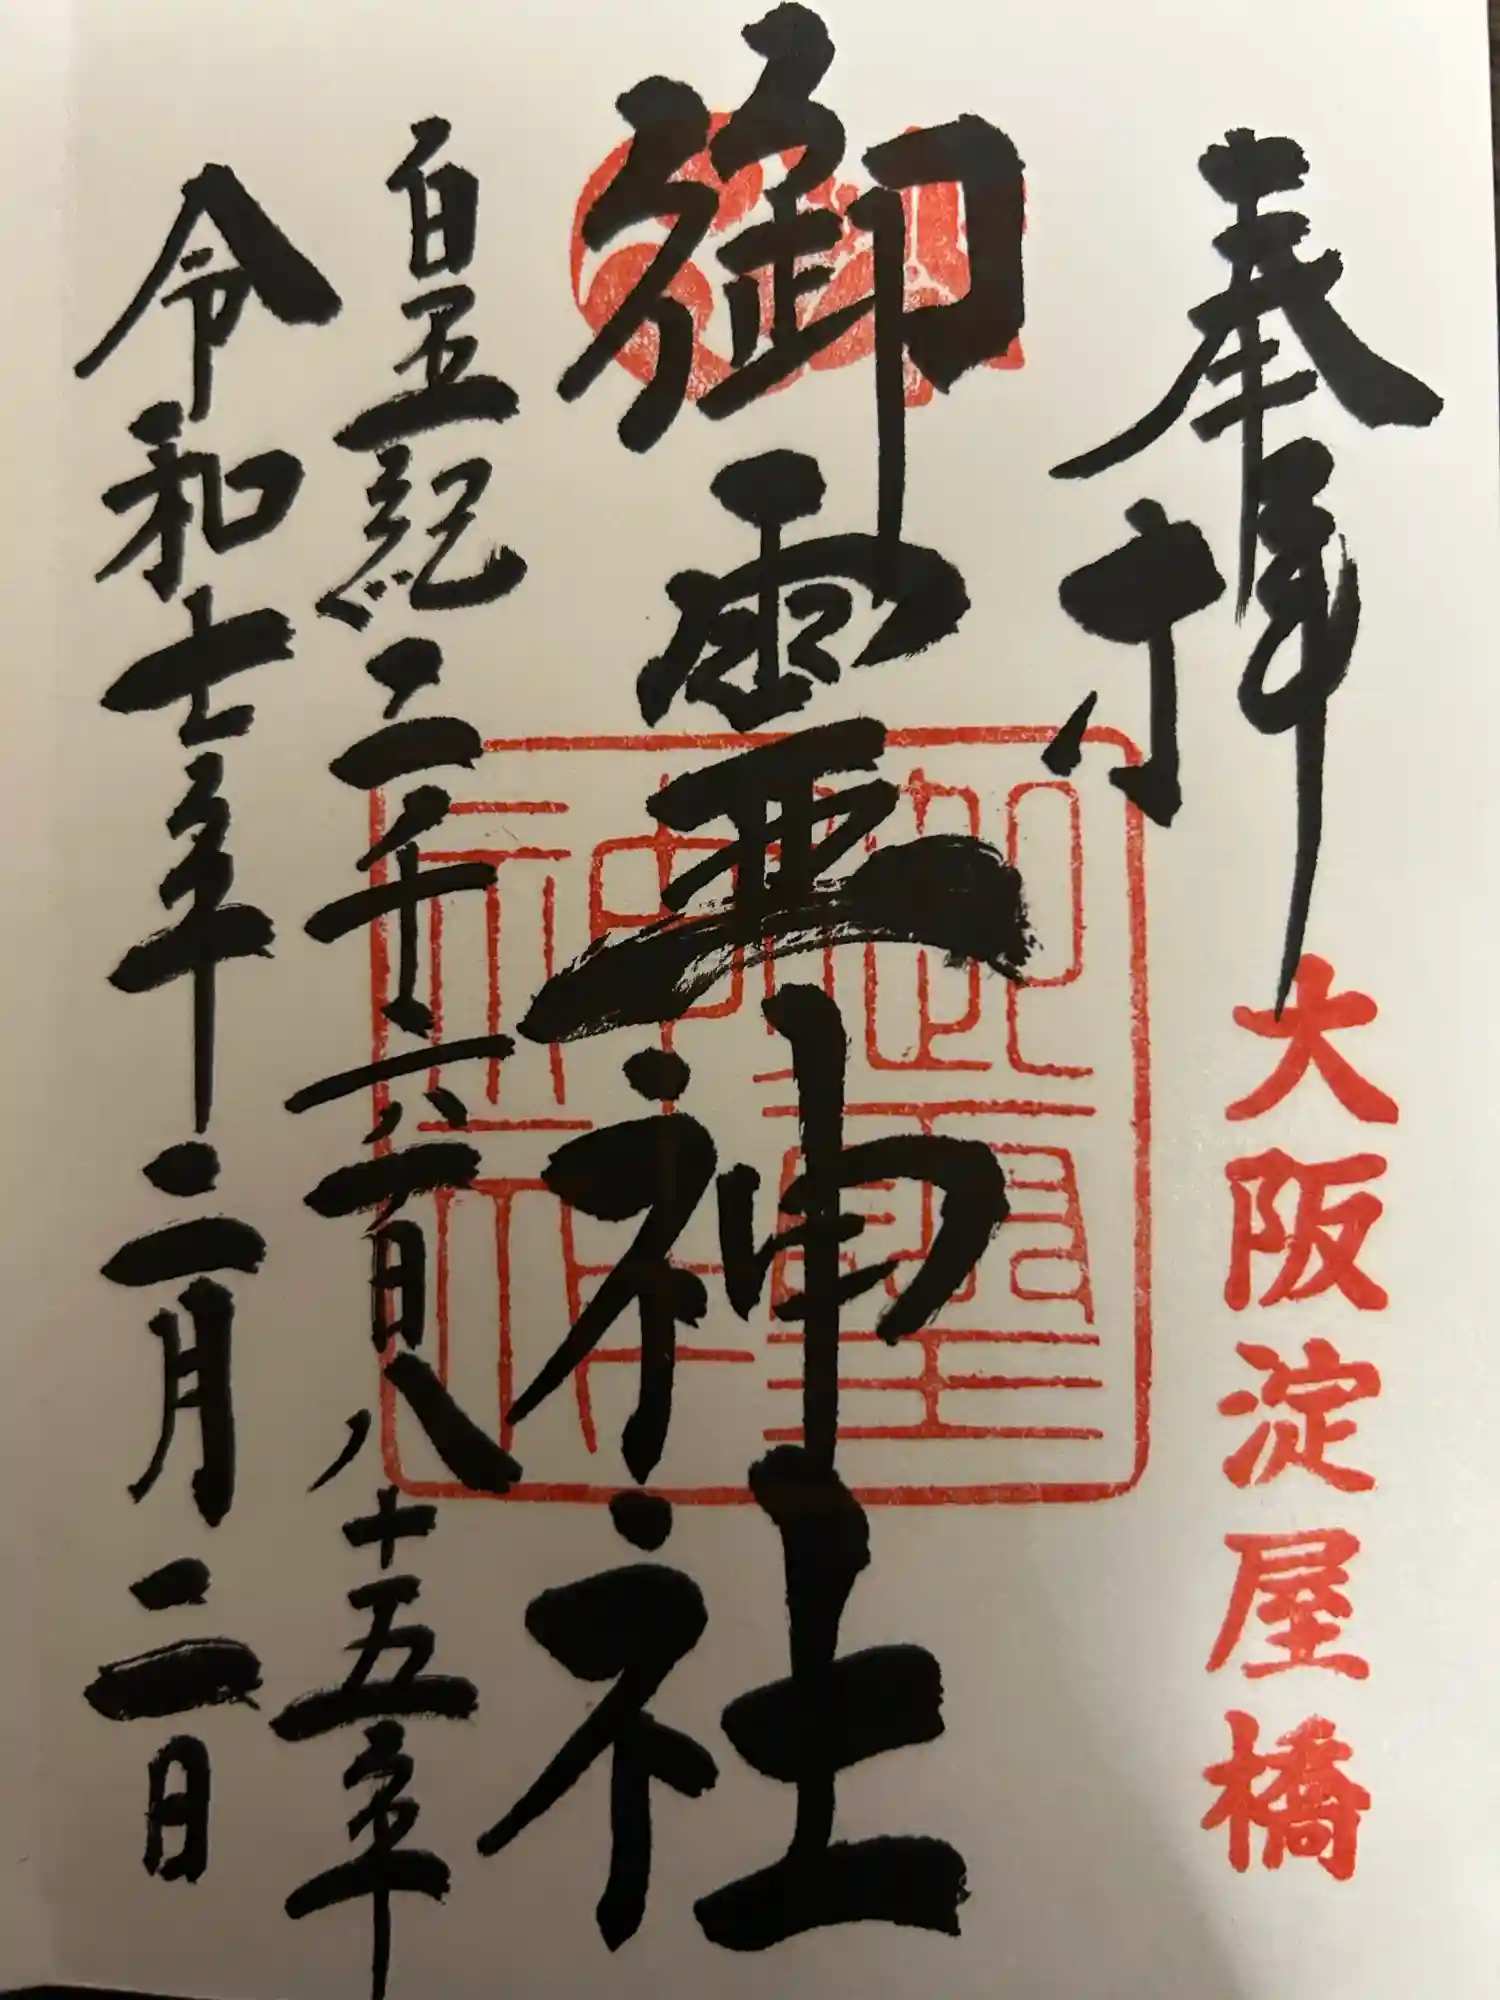 奉拝
大阪淀屋橋
御霊神社
御霊神社
皇紀二千六百八十五年
令和七年二月二日